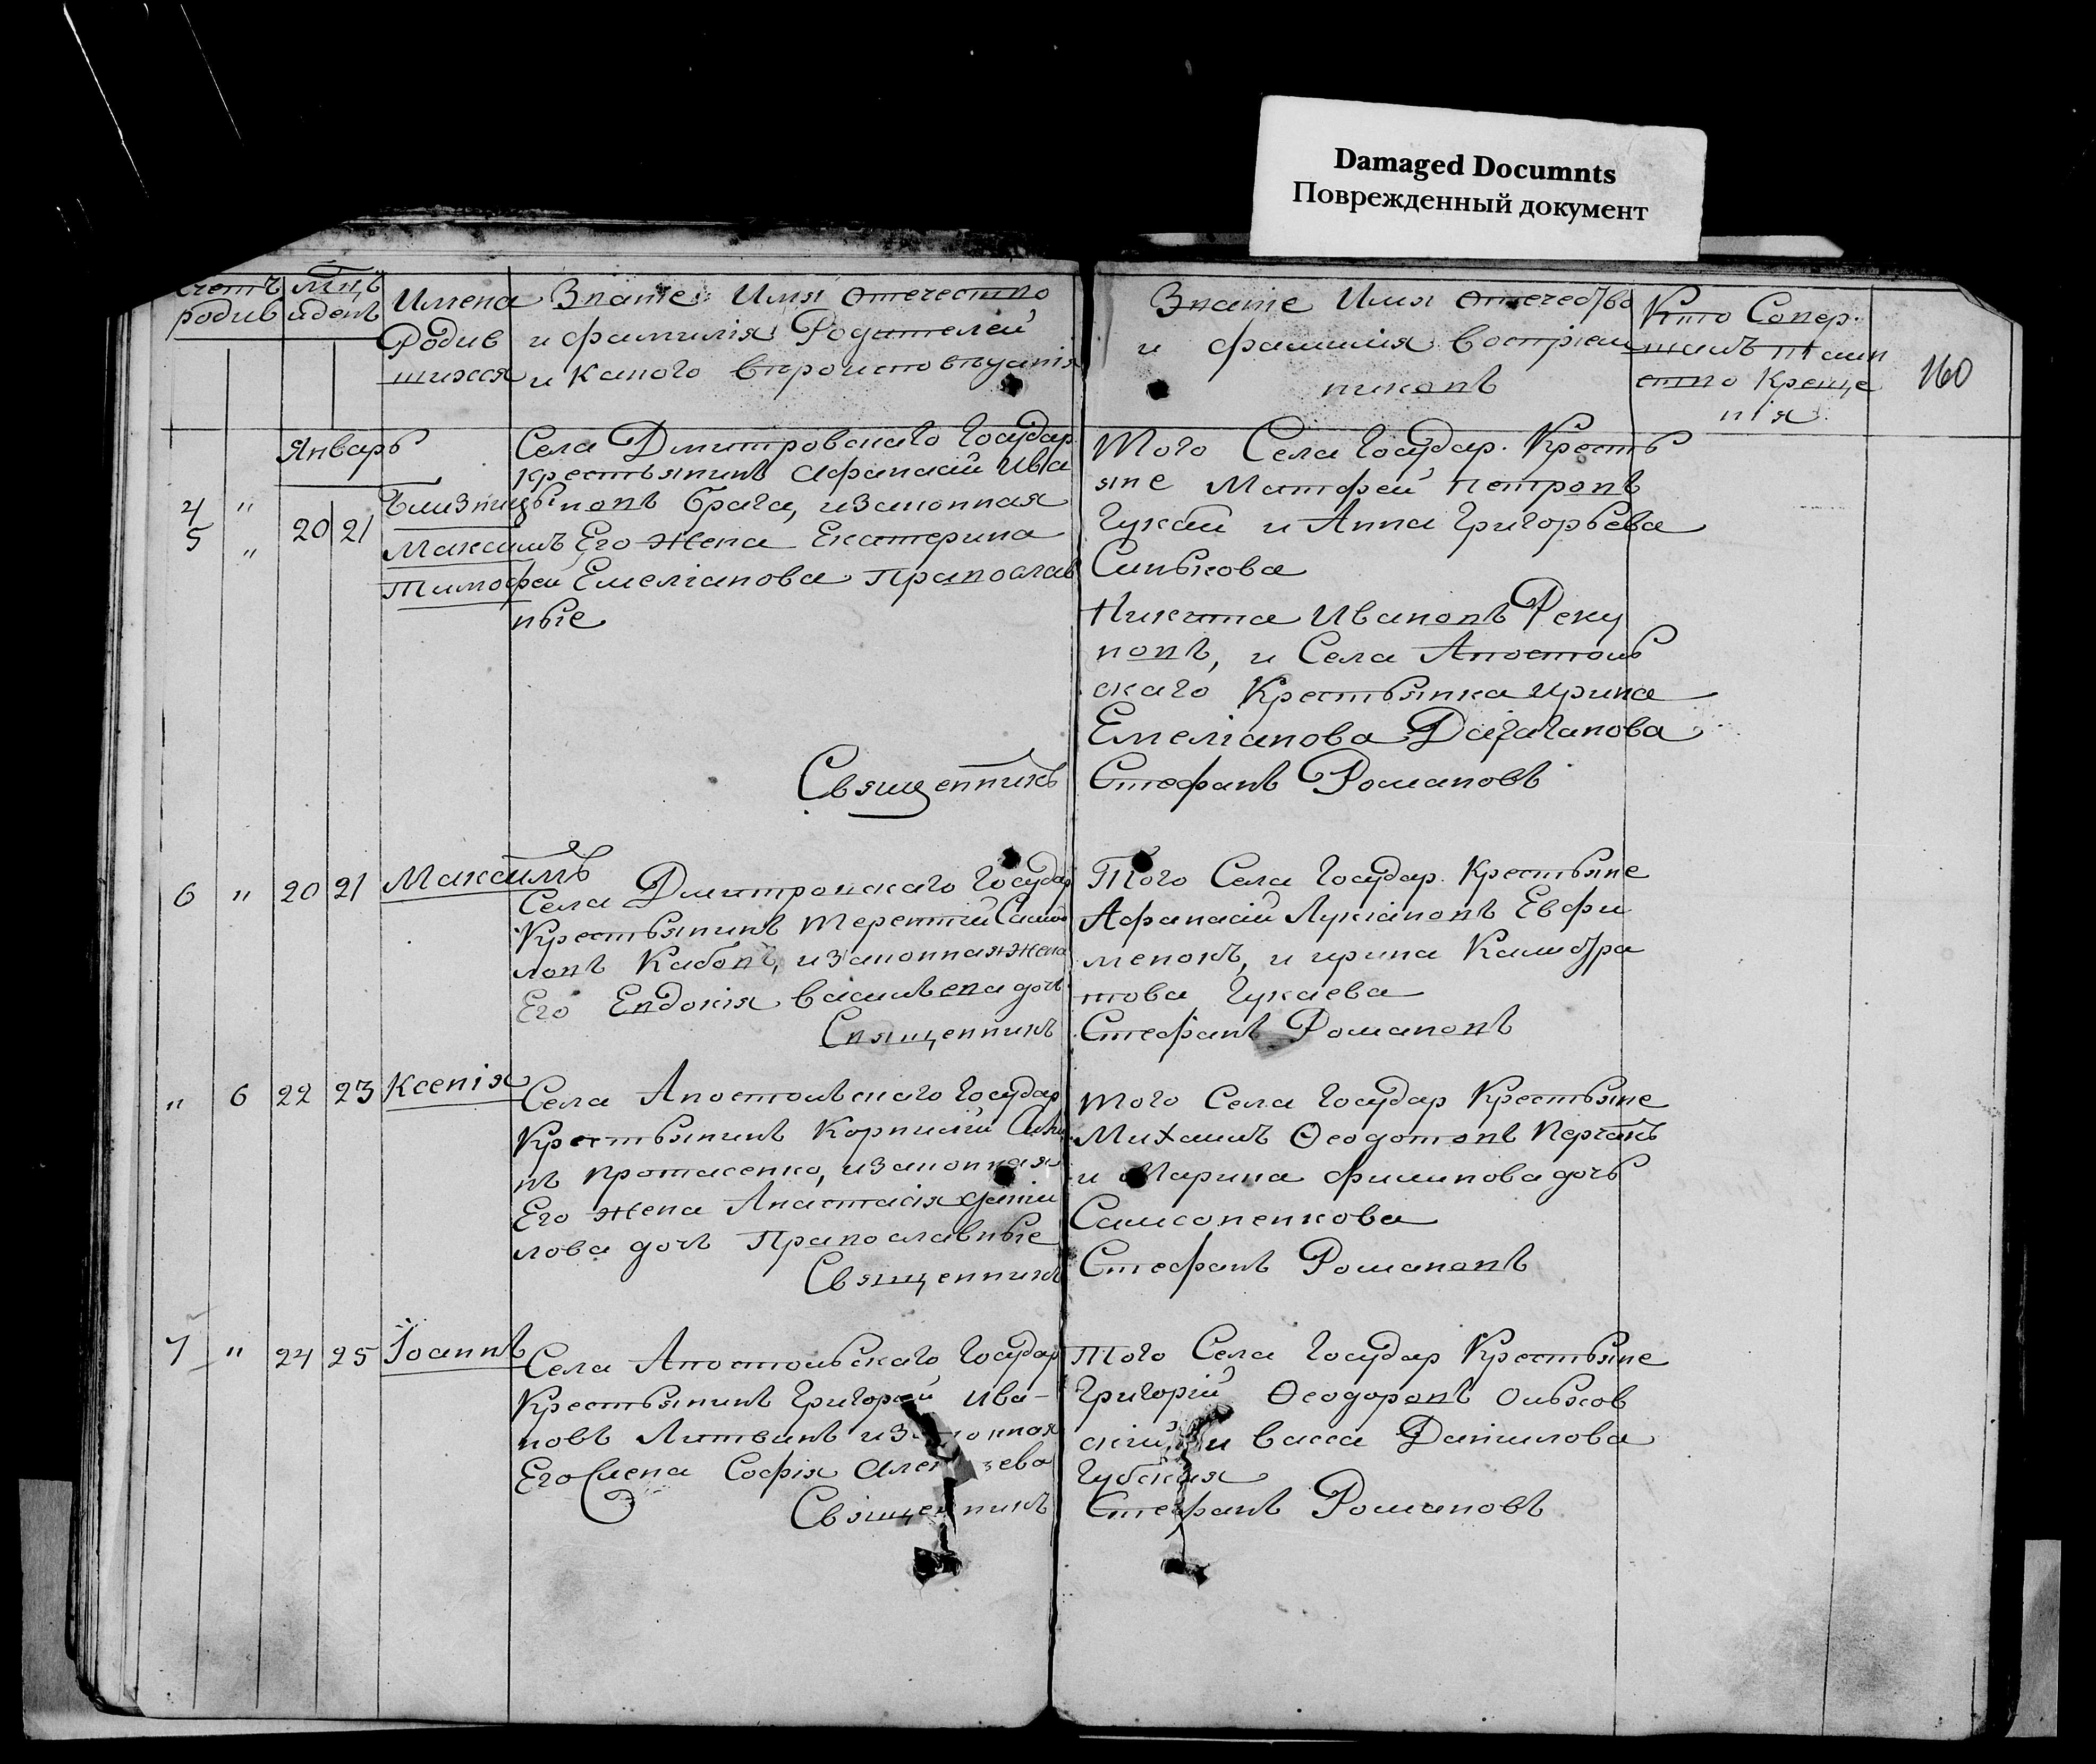 Damaged Documnts
Поврежденный документ
Счетъ родив
Мцъ и день
Имена
Родив
шихся
Званіе Имя Отечество
и фамилія Родителей
и Какого вѣроисповѣданія
Званіе Имя Отечество
и фамилія воспріем
никовъ
Кто Совер
шалъ таин
ство Креще
нія
160
Январь
4 " 20 21
5 "
Близницы
Максимъ
Тимофей
Села Дмитровскаго Государ.
Крестьянинъ Афанасій Ива
новъ Брага, изаконная
Его жена Екатерина
Емеліанова Православ
ные
Священникъ
Того Села Государ. Кресть
яне Матфей Петровъ
Гукай и Анна Григорьева
Синькова
Никита Ивановъ Реку
новъ, и Села Апостоль
скаго Крестьянка Ирина
Емеліанова
Стефанъ Романовъ
6 " 20 21
Максимъ
Села Дмитровскаго Государ
Крестьянинъ Терентій Самой
ловъ Кабонъ, изаконная жена
Его Евдокія Васильева дочь
Священникъ
Того Села Государ. Крестьяне
Афанасій Лукіановъ Евфи
менокъ, и Ирина Калистра
това Гукаева
Стефанъ Романовъ
" 6 22 23
Ксенія
Села Апостольскаго Государ
Крестьянинъ Корнилій
нъ Протасенко, изаконная
Его жена Анастасія Дании
лова дочь Православные
Священникъ
Того Села Государ Крестьяне
Михаилъ Ѳеодотовъ
и Марина Филипова дочь
Самсоненкова
Стефанъ Романовъ
7 " 24 25
Іоаннъ
Села Апостольскаго Государ
Крестьянинъ Григорій Ива-
новъ Литвинъ изаконная
Его Жена Софія
Священникъ
Того Села Государ Крестьяне
Григорій Ѳеодоровъ Ольхов
скій, и Васса Данилова
Губская
Стефанъ Романовъ